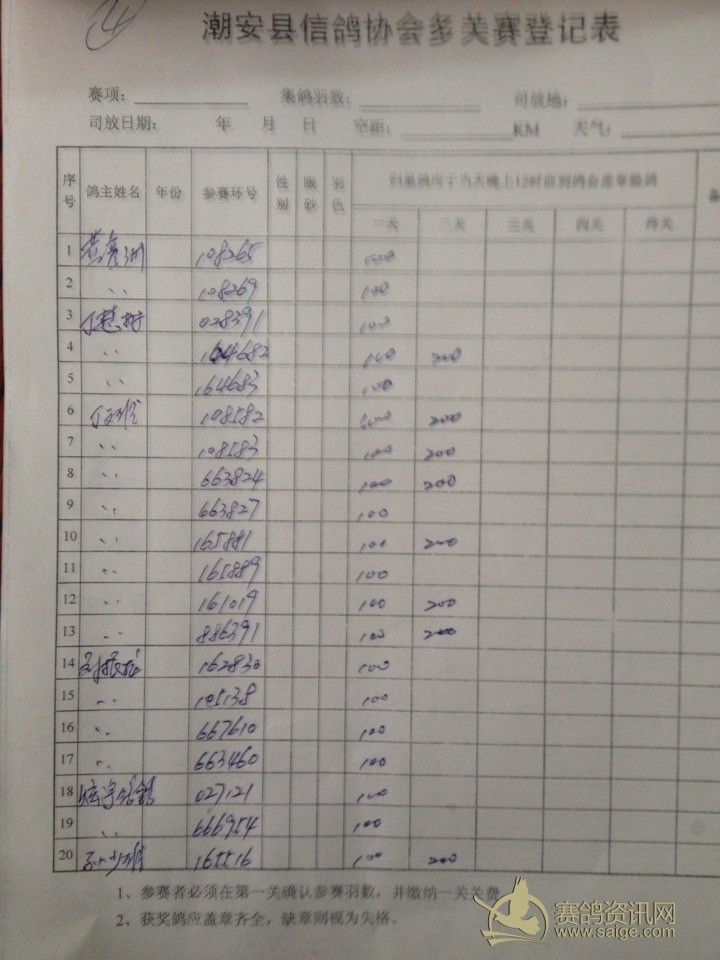 4
潮安县信鸽协会多关赛登记表
赛项： 集鸽羽数： 司放地：
司放日期： 年 月 日 空距： KM 天气：
序号 鸽主姓名 年份 参赛环号 性别 眼砂 羽色 归巢鸽应于当天晚上12时前到鸽会盖章验鸽
一关 二关 三关 四关 终关
1 108265 100
2 〃 108269 100
3 028391 100
4 〃 164682 100 200
5 〃 164683 100
6 108582 100 200
7 〃 108583 100 200
8 〃 663824 100 200
9 〃 663827 100
10 〃 165881 100 200
11 〃 165889 100
12 〃 161019 100 200
13 〃 886391 100 200
14 162830 100
15 〃 105138 100
16 〃 667610 100
17 〃 663460 100
18 027121 100
19 〃 666954 100
20 165516 100 200
1、参赛者必须在第一关确认参赛羽数，并缴纳一关关费
2、获奖鸽应盖章齐全，缺章则视为失格。
赛鸽资讯网
www.saige.com